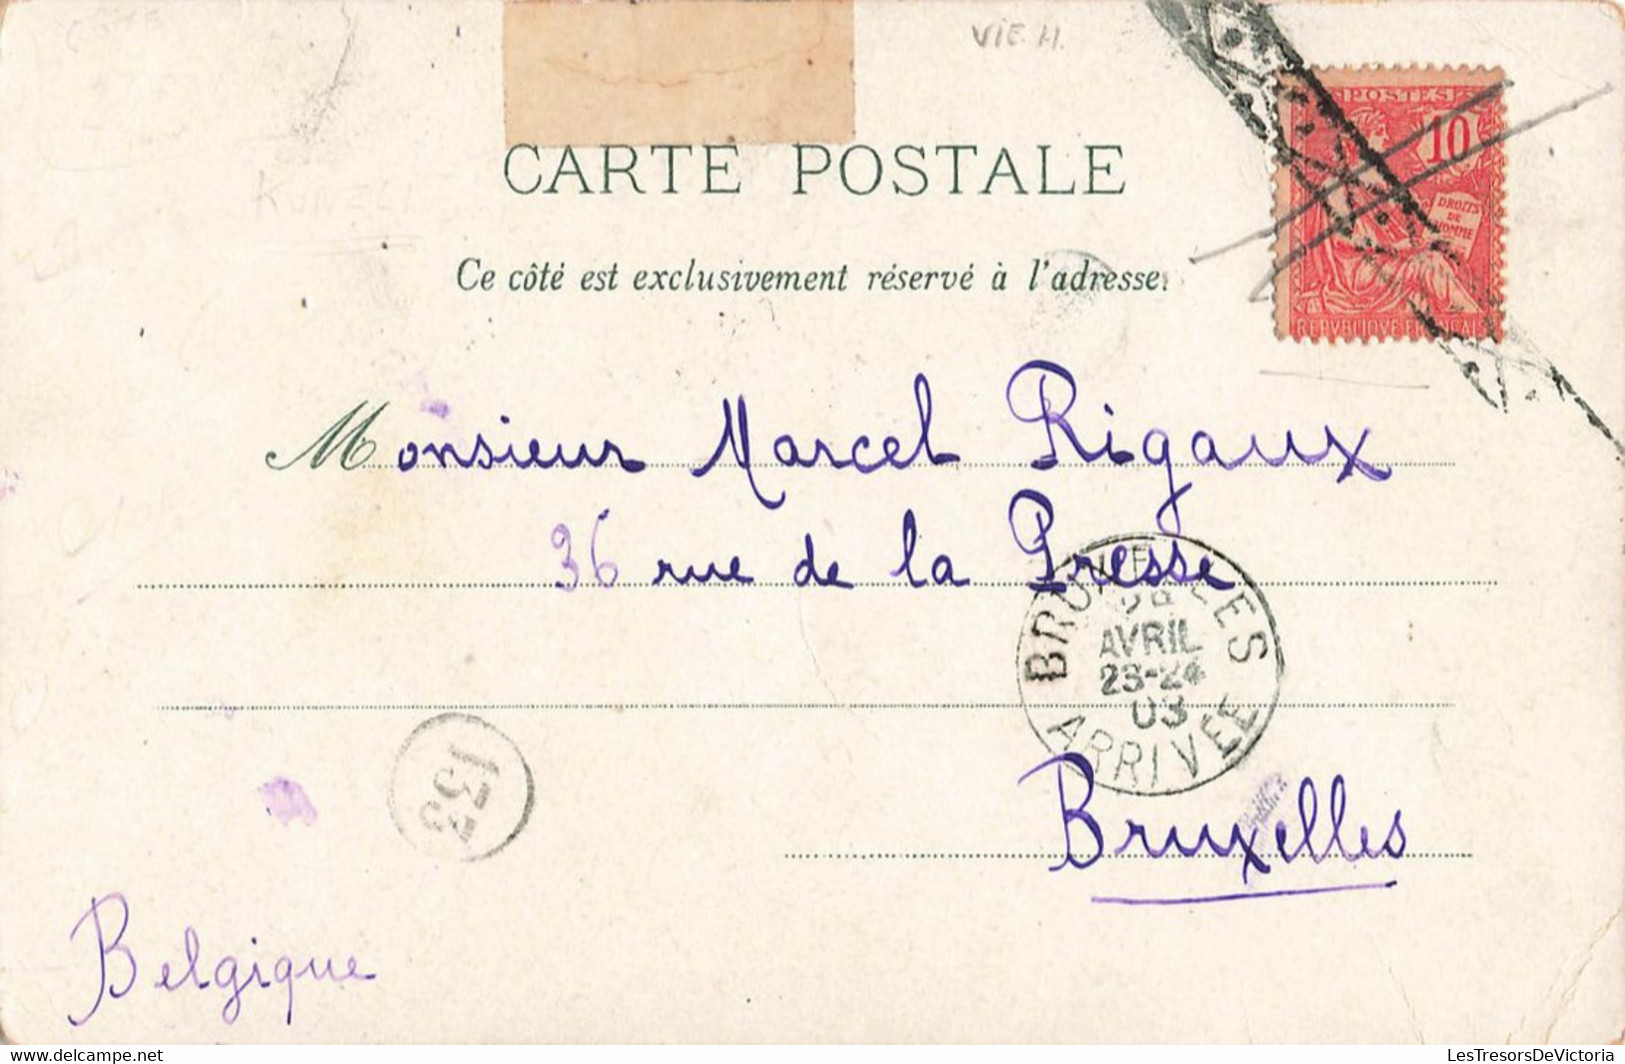 VIE. H.
CARTE POSTALE
Ce côté est exclusivement réservé à l'adresse.
POSTES
10
DROITS
DE
HOMME
REPVBLIQVE FRANÇAISE
Monsieur Marcel Rigaux
36 rue de la Presse
BRUXELLES
AVRIL
23-24
03
ARRIVÉE
133
Bruxelles
Belgique
LesTresorsDeVictoria
delcampe.net